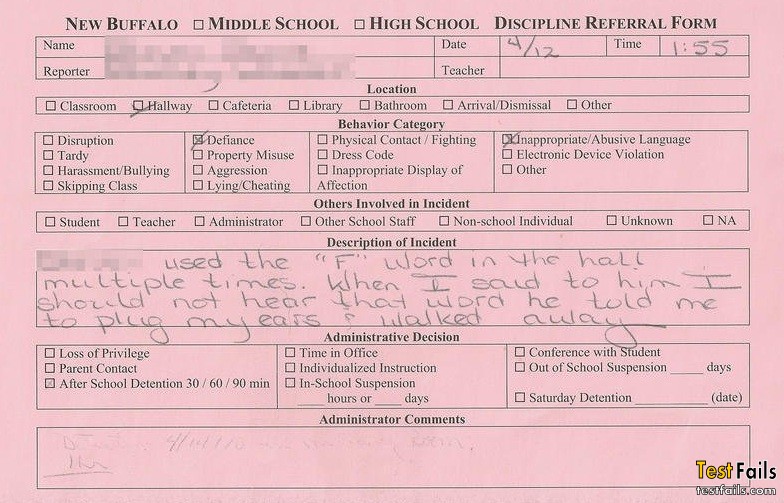 NEW BUFFALO ☐ MIDDLE SCHOOL ☐ HIGH SCHOOL DISCIPLINE REFERRAL FORM
Name Date 4/12 Time 1:55
Reporter Teacher
Location
☐ Classroom ☑ Hallway ☐ Cafeteria ☐ Library ☐ Bathroom ☐ Arrival/Dismissal ☐ Other
Behavior Category
☐ Disruption ☒ Defiance ☐ Physical Contact / Fighting ☒ Inappropriate/Abusive Language
☐ Tardy ☐ Property Misuse ☐ Dress Code ☐ Electronic Device Violation
☐ Harassment/Bullying ☐ Aggression ☐ Inappropriate Display of ☐ Other
☐ Skipping Class ☐ Lying/Cheating Affection
Others Involved in Incident
☐ Student ☐ Teacher ☐ Administrator ☐ Other School Staff ☐ Non-school Individual ☐ Unknown ☐ NA
Description of Incident
used the "F" word in the hall
multiple times. When I said to him I
should not hear that word he told me
to plug my ears & walked away
Administrative Decision
☐ Loss of Privilege ☐ Time in Office ☐ Conference with Student
☐ Parent Contact ☐ Individualized Instruction ☐ Out of School Suspension _____ days
☒ After School Detention 30 / 60 / 90 min ☐ In-School Suspension
____ hours or ____ days ☐ Saturday Detention ________ (date)
Administrator Comments
Test Fails
testfails.com